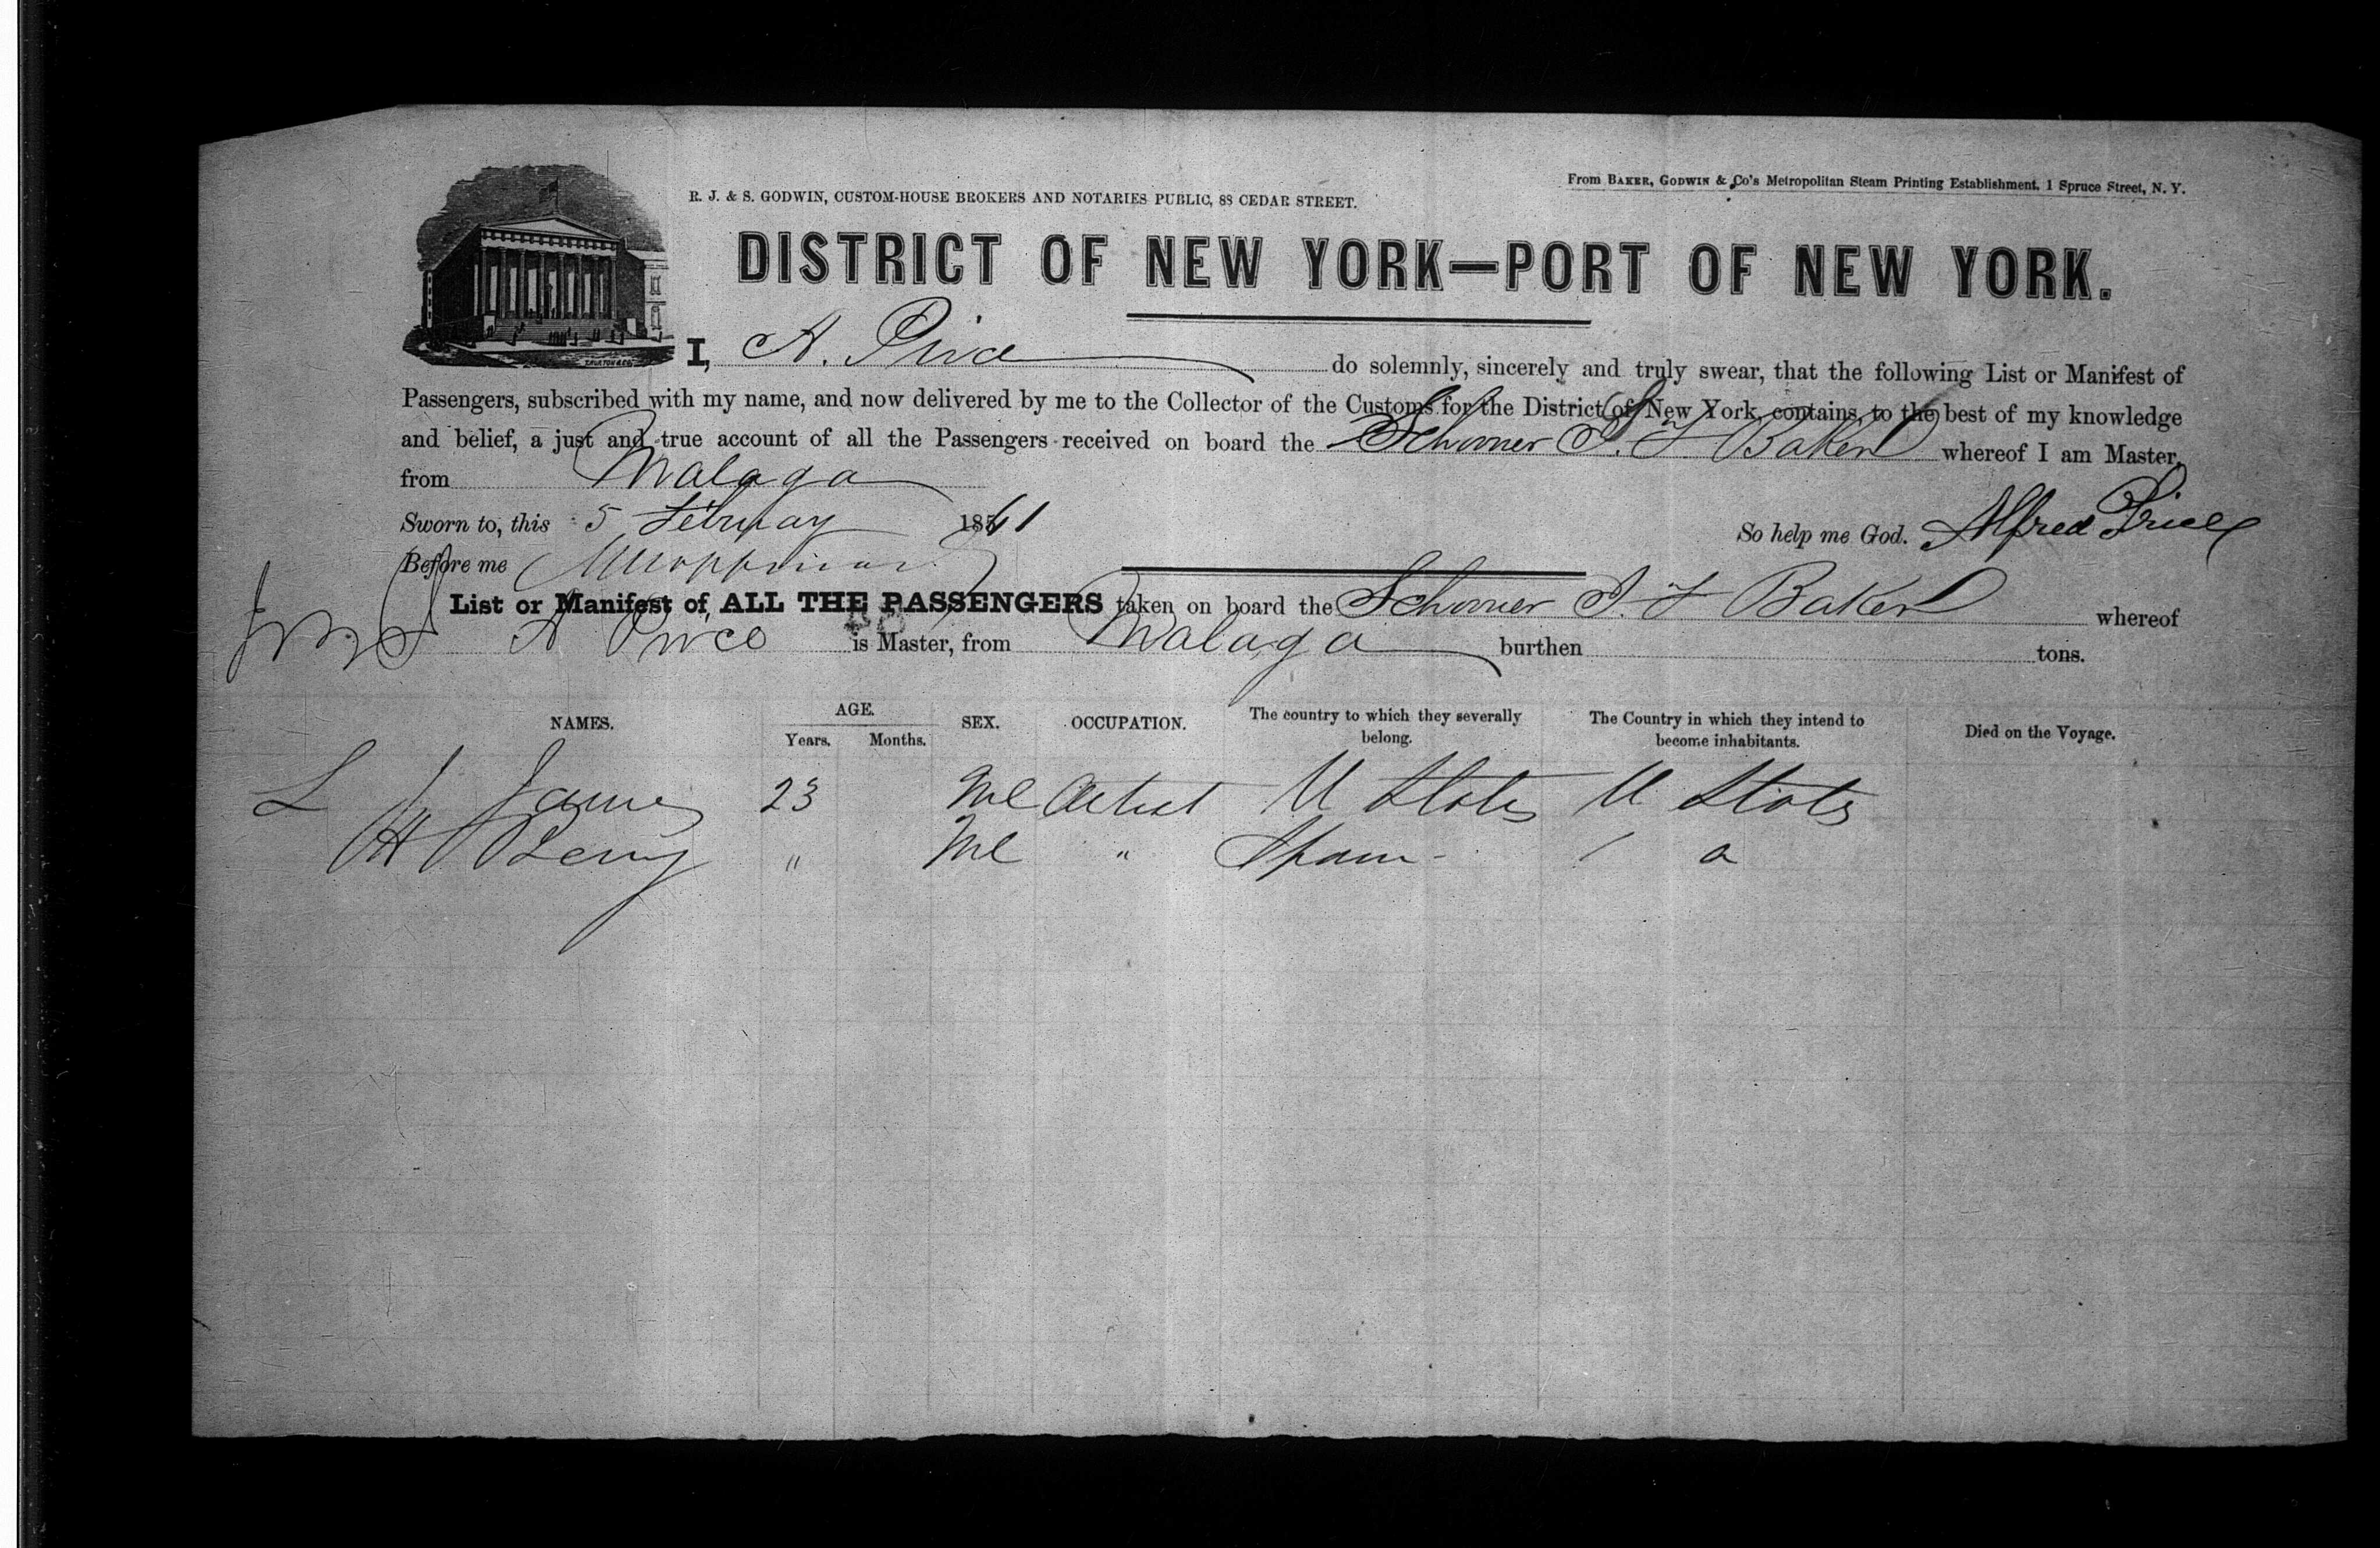 R. J. & S. GODWIN, CUSTOM-HOUSE BROKERS AND NOTARIES PUBLIC, 88 CEDAR STREET.
From BAKER, GODWIN & Co's Metropolitan Steam Printing Establishment, 1 Spruce Street, N. Y.
DISTRICT OF NEW YORK—PORT OF NEW YORK.
I, A. Price do solemnly, sincerely and truly swear, that the following List or Manifest of
Passengers, subscribed with my name, and now delivered by me to the Collector of the Customs for the District of New York, contains, to the best of my knowledge
and belief, a just and true account of all the Passengers received on board the Schooner Baker whereof I am Master,
from Malaga
Sworn to, this 5 February 1861
So help me God. Alfred Price
Before me
List or Manifest of ALL THE PASSENGERS taken on board the Schooner Baker whereof
A Price is Master, from Malaga burthen tons.
NAMES. AGE. SEX. OCCUPATION. The country to which they severally belong. The Country in which they intend to become inhabitants. Died on the Voyage.
Years. Months.
L James 23 Ml Artist U States U States
H " Ml " Spain